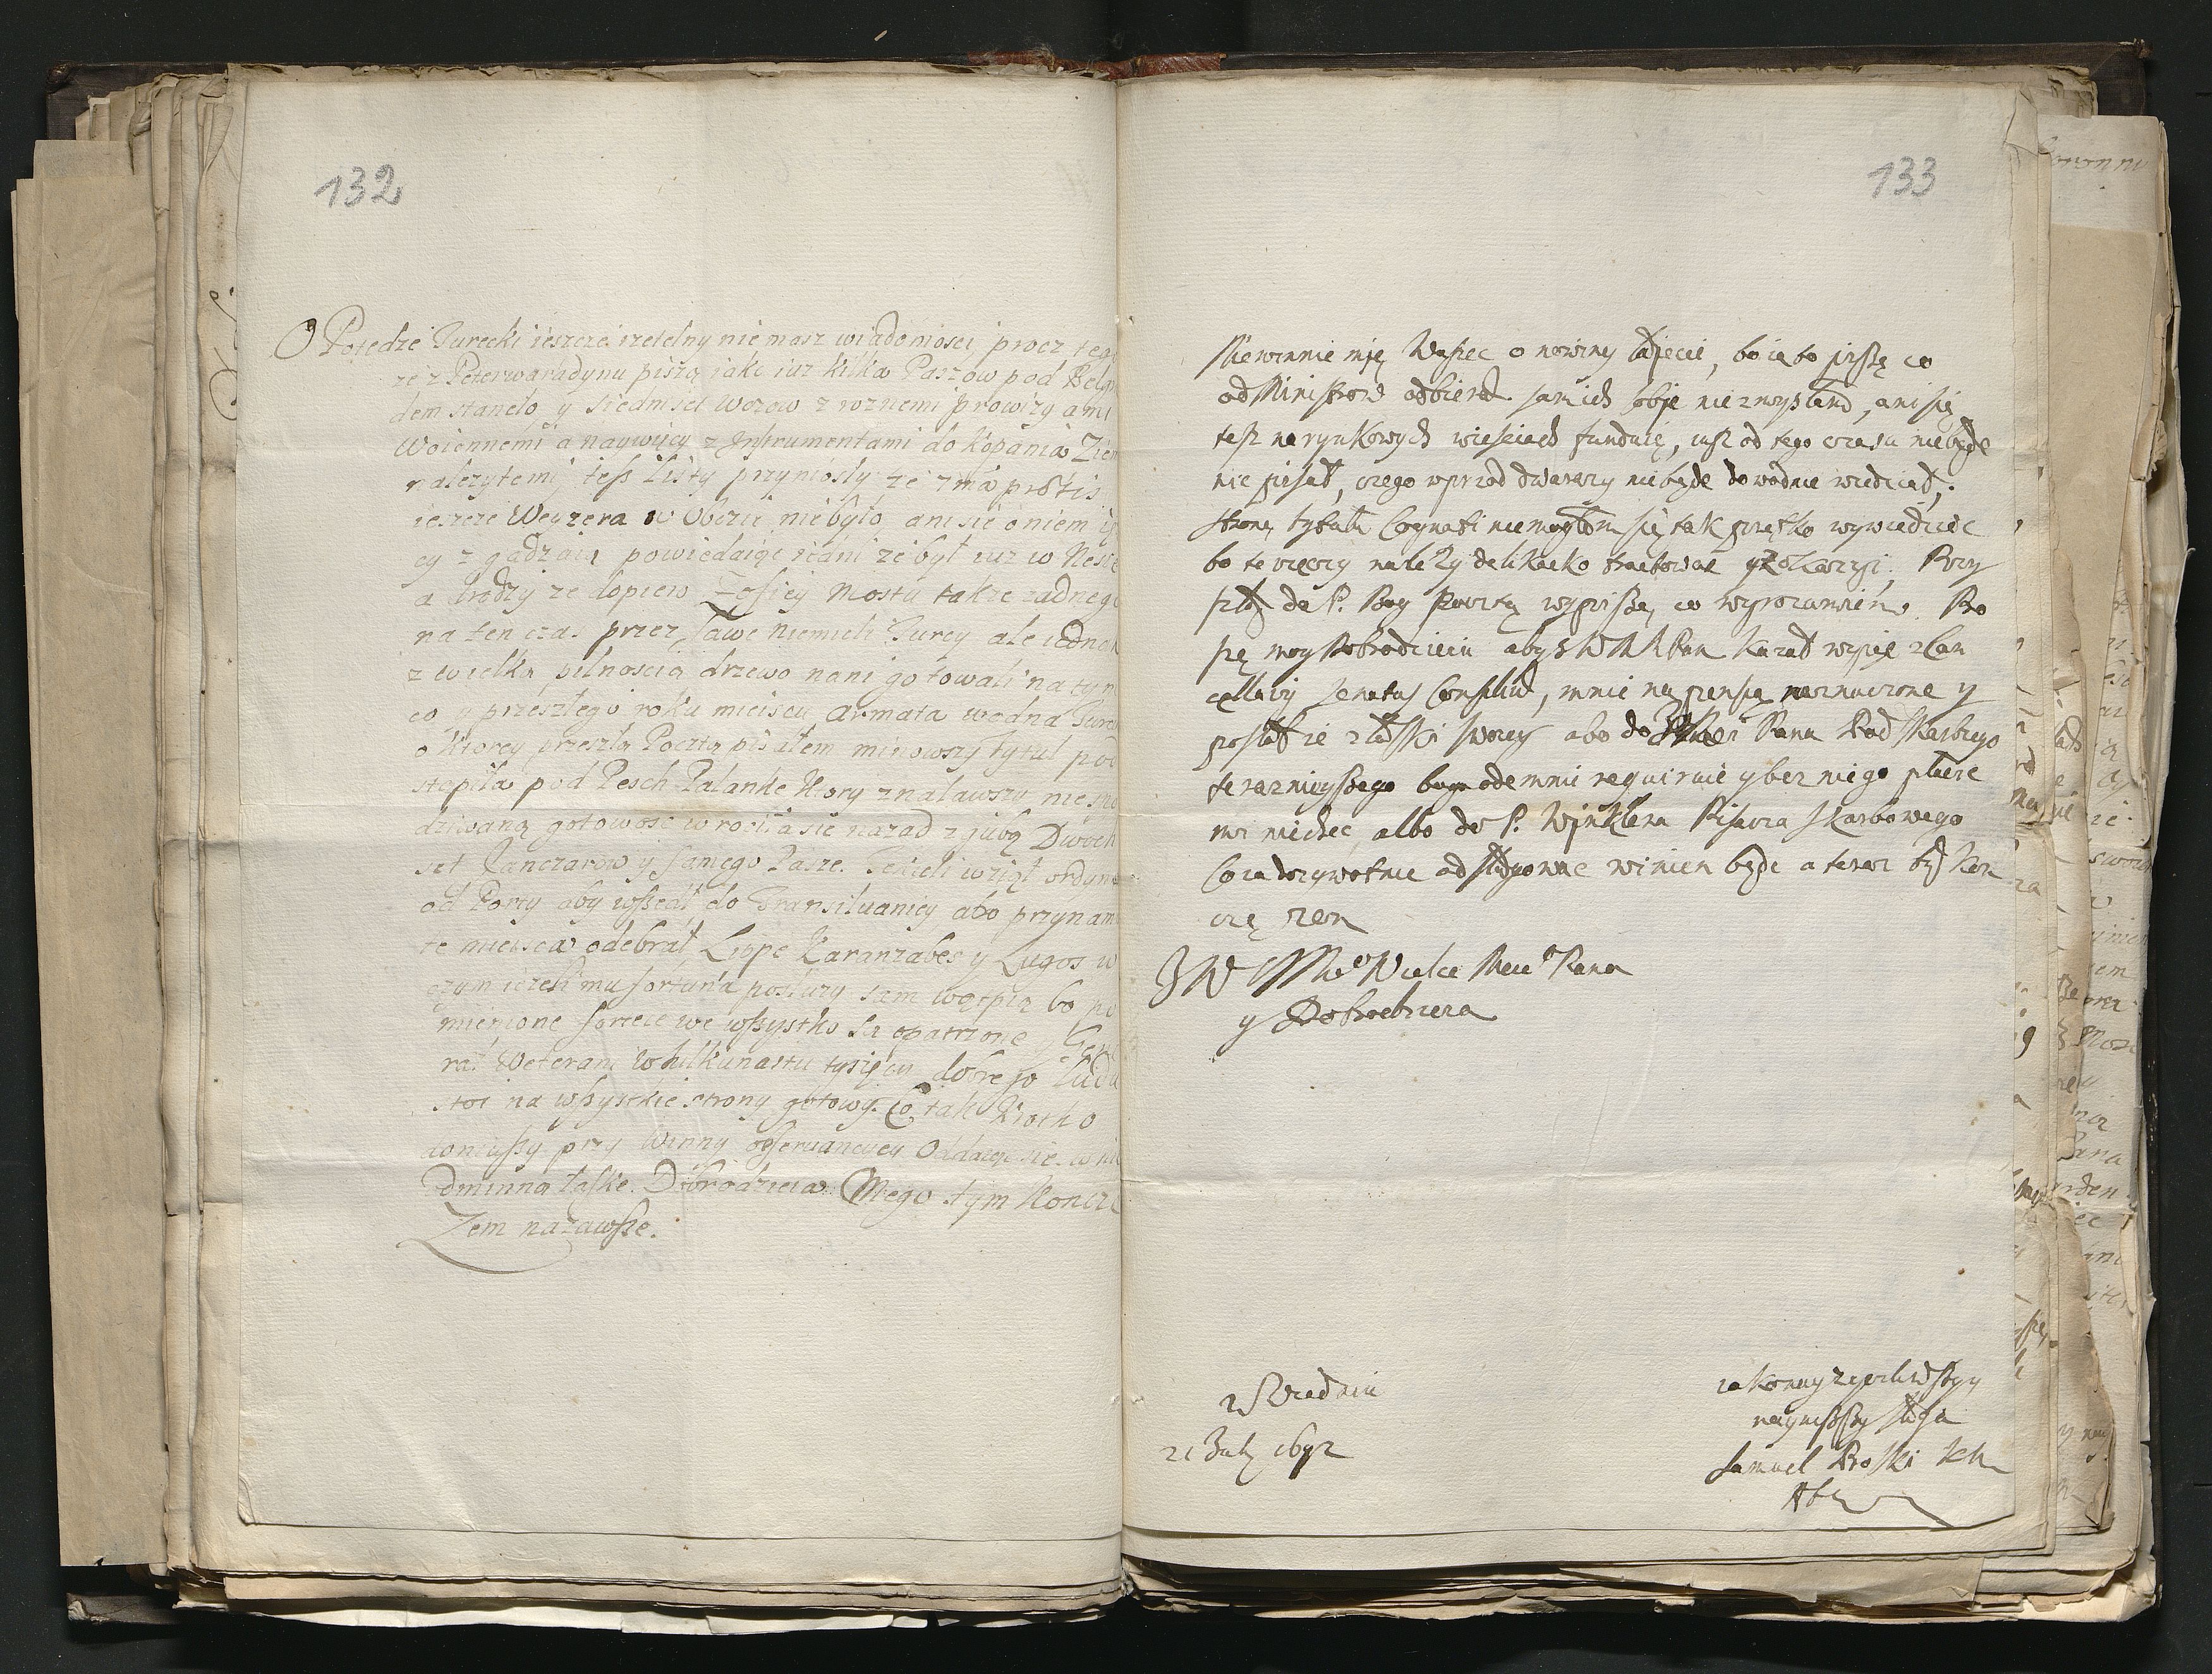 132
O Potędze Turecki ieszcze rzetelny nie masz wiadomosci procz tego
ze z Peterwaradynu piszą iako iuz kilka Paszow pod Belg
dem staneło y siedmset wozow z roznemi prowizyami
Woiennemi a naywięcy z Instrumentami do kopania Ziem
nalezytemi, tesz Listy przyniosły ze 7ma
ieszcze Wezyra w Obozie niebyło ani sie o niem
cy zgadzaią powiedaiąc iedni ze był iuz w
a drudzy ze dopiero Mostu takze zadnego
na ten czas przez Sawe niemieli Turcy ale iednak
z wielką pilnoscią drzewo nani gotowali na tym
co y przeszłego roku mieiscu, Armata wodna Turec
o ktorey przeszłą Pocztą pisałem minowszy tytul pod
stąpiła pod Pesch Palanke ktory znalawszy niespo
dziwaną gotowosc wrociła sie nazad z zgubą Dwoch
set Janczarow y samego Pasze. Tekieli wziął ordyn
od Porty aby wszedł do Transiluaniey abo przynam
te mieisca odebrał Lippe Karanzabes y Lugos w
czym iezeli mu fortuna posłuzy sam wątpią bo po
mienione fortece we wszystko są opatrzone y Gene
rał Weterani w kilkunastu tysięcy dobrego ludu
stoi na wszystkie strony gotowy. Co tak krotko
doniosszy przy winny obserwancyey Oddaięc sie w nie
Dminną łaske Dobrodzieia Mego tym koncze
Zem nazawsze.
133
Niewinnie mię Waszec o nowiny łaiecie, bo ia to piszę co
od Ministrow odbieram sam ich sobie nie zmyslam, ani się
tesz na rynkowych wiesciach funduię, iusz od tego czasu niebęde
nic pisał, czego wprzod dwa razy nie będe dowodnie wiedział,
strony tytułu Cognati niemogłem się tak prętko wywiedziec
bo te rzeczy nalezy delikacko traktowac
szłą da P. Bog Pocztą wypiszę, co wyrozumiem. Pro
szę moy Dobrodzieiu abys WM Pan kazał wypis z Can
cellariy Senatus Consultum, mnie na pensią naznaczone y
posłał ie z łaski swoiey abo do Pana Pod Skarbiego
teraznieyszego bo go odemnie requiruie y bez niego płacic
mi niechce, albo do P. Winklera Pisarza Skarbowego
Co ia dozywotnie odsługowac winien będe a teraz tym kon
czę zem
JW MMo Wielce Meo Pana
y Dobrodzieia
z Wiednia
21 July 1692
naynizszy sługa
Samuel Proski